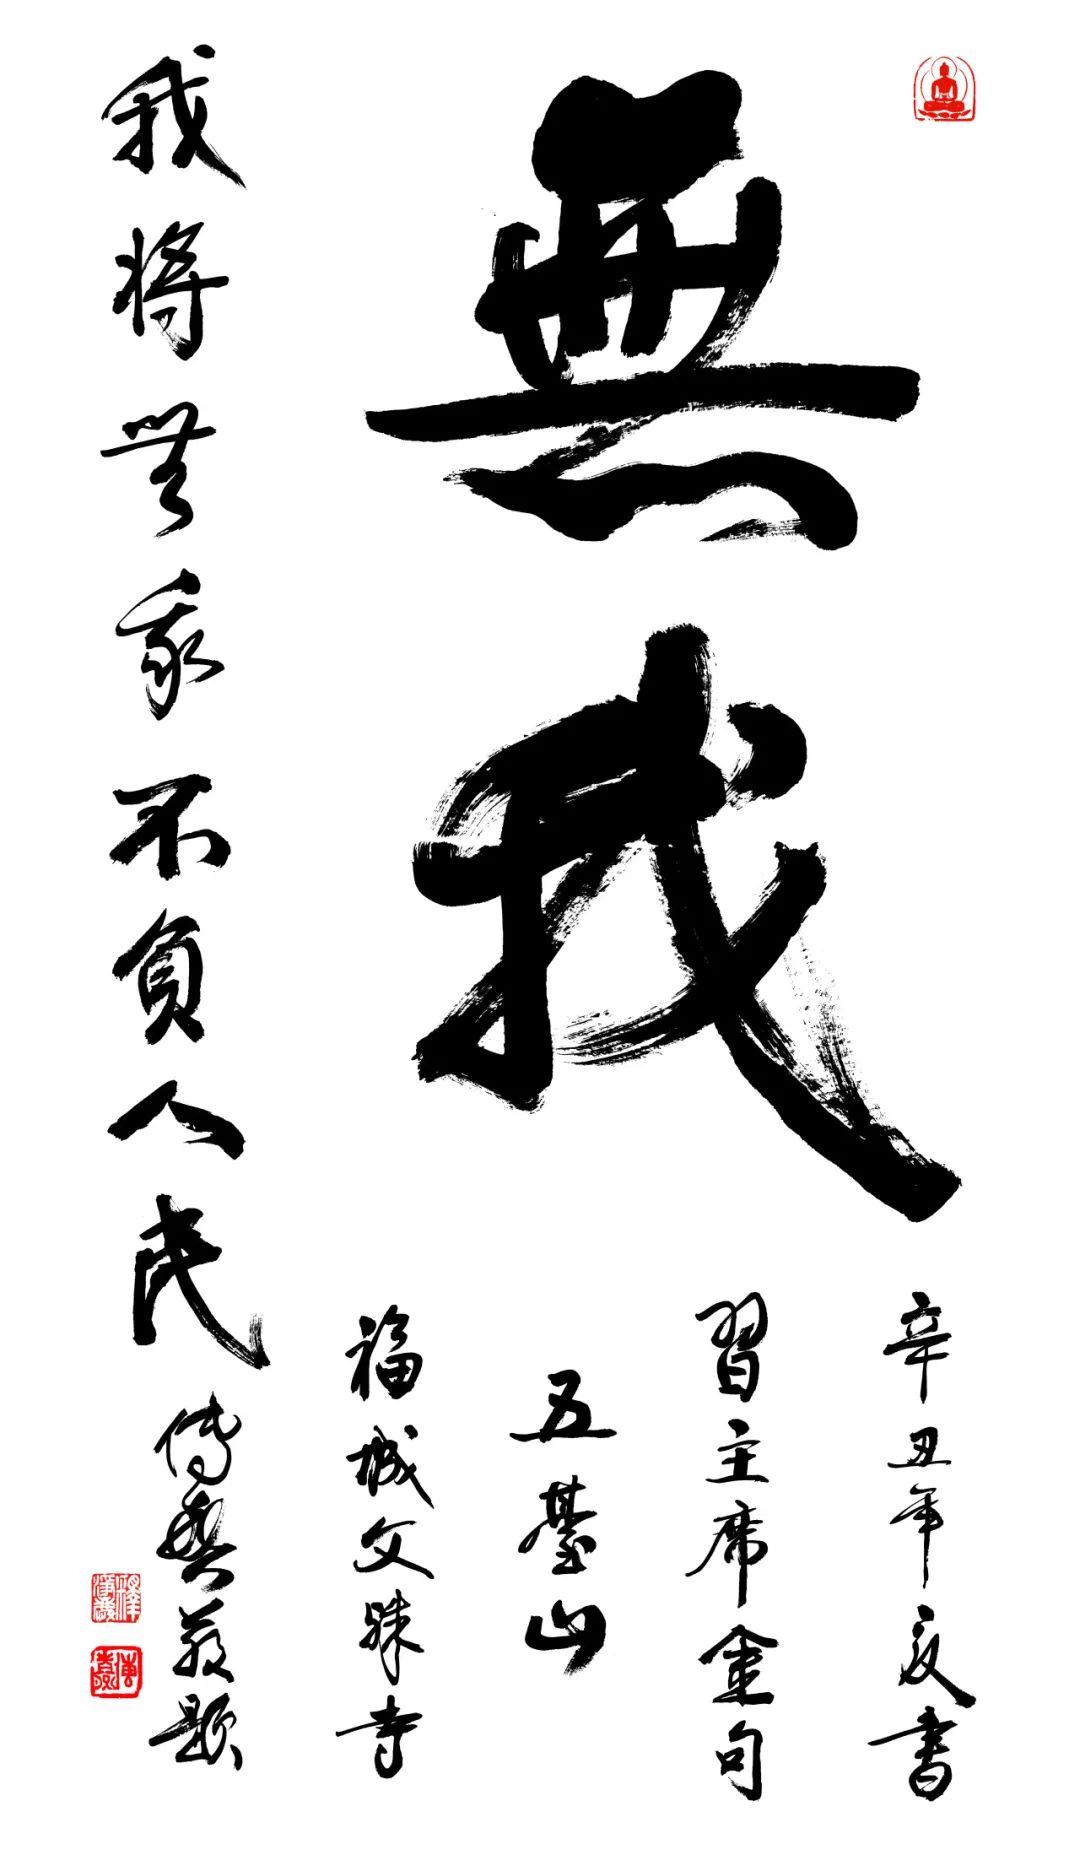 無我
辛丑年夏書
習主席金句
五臺山
福城文殊寺
我將無我不負人民
傳題